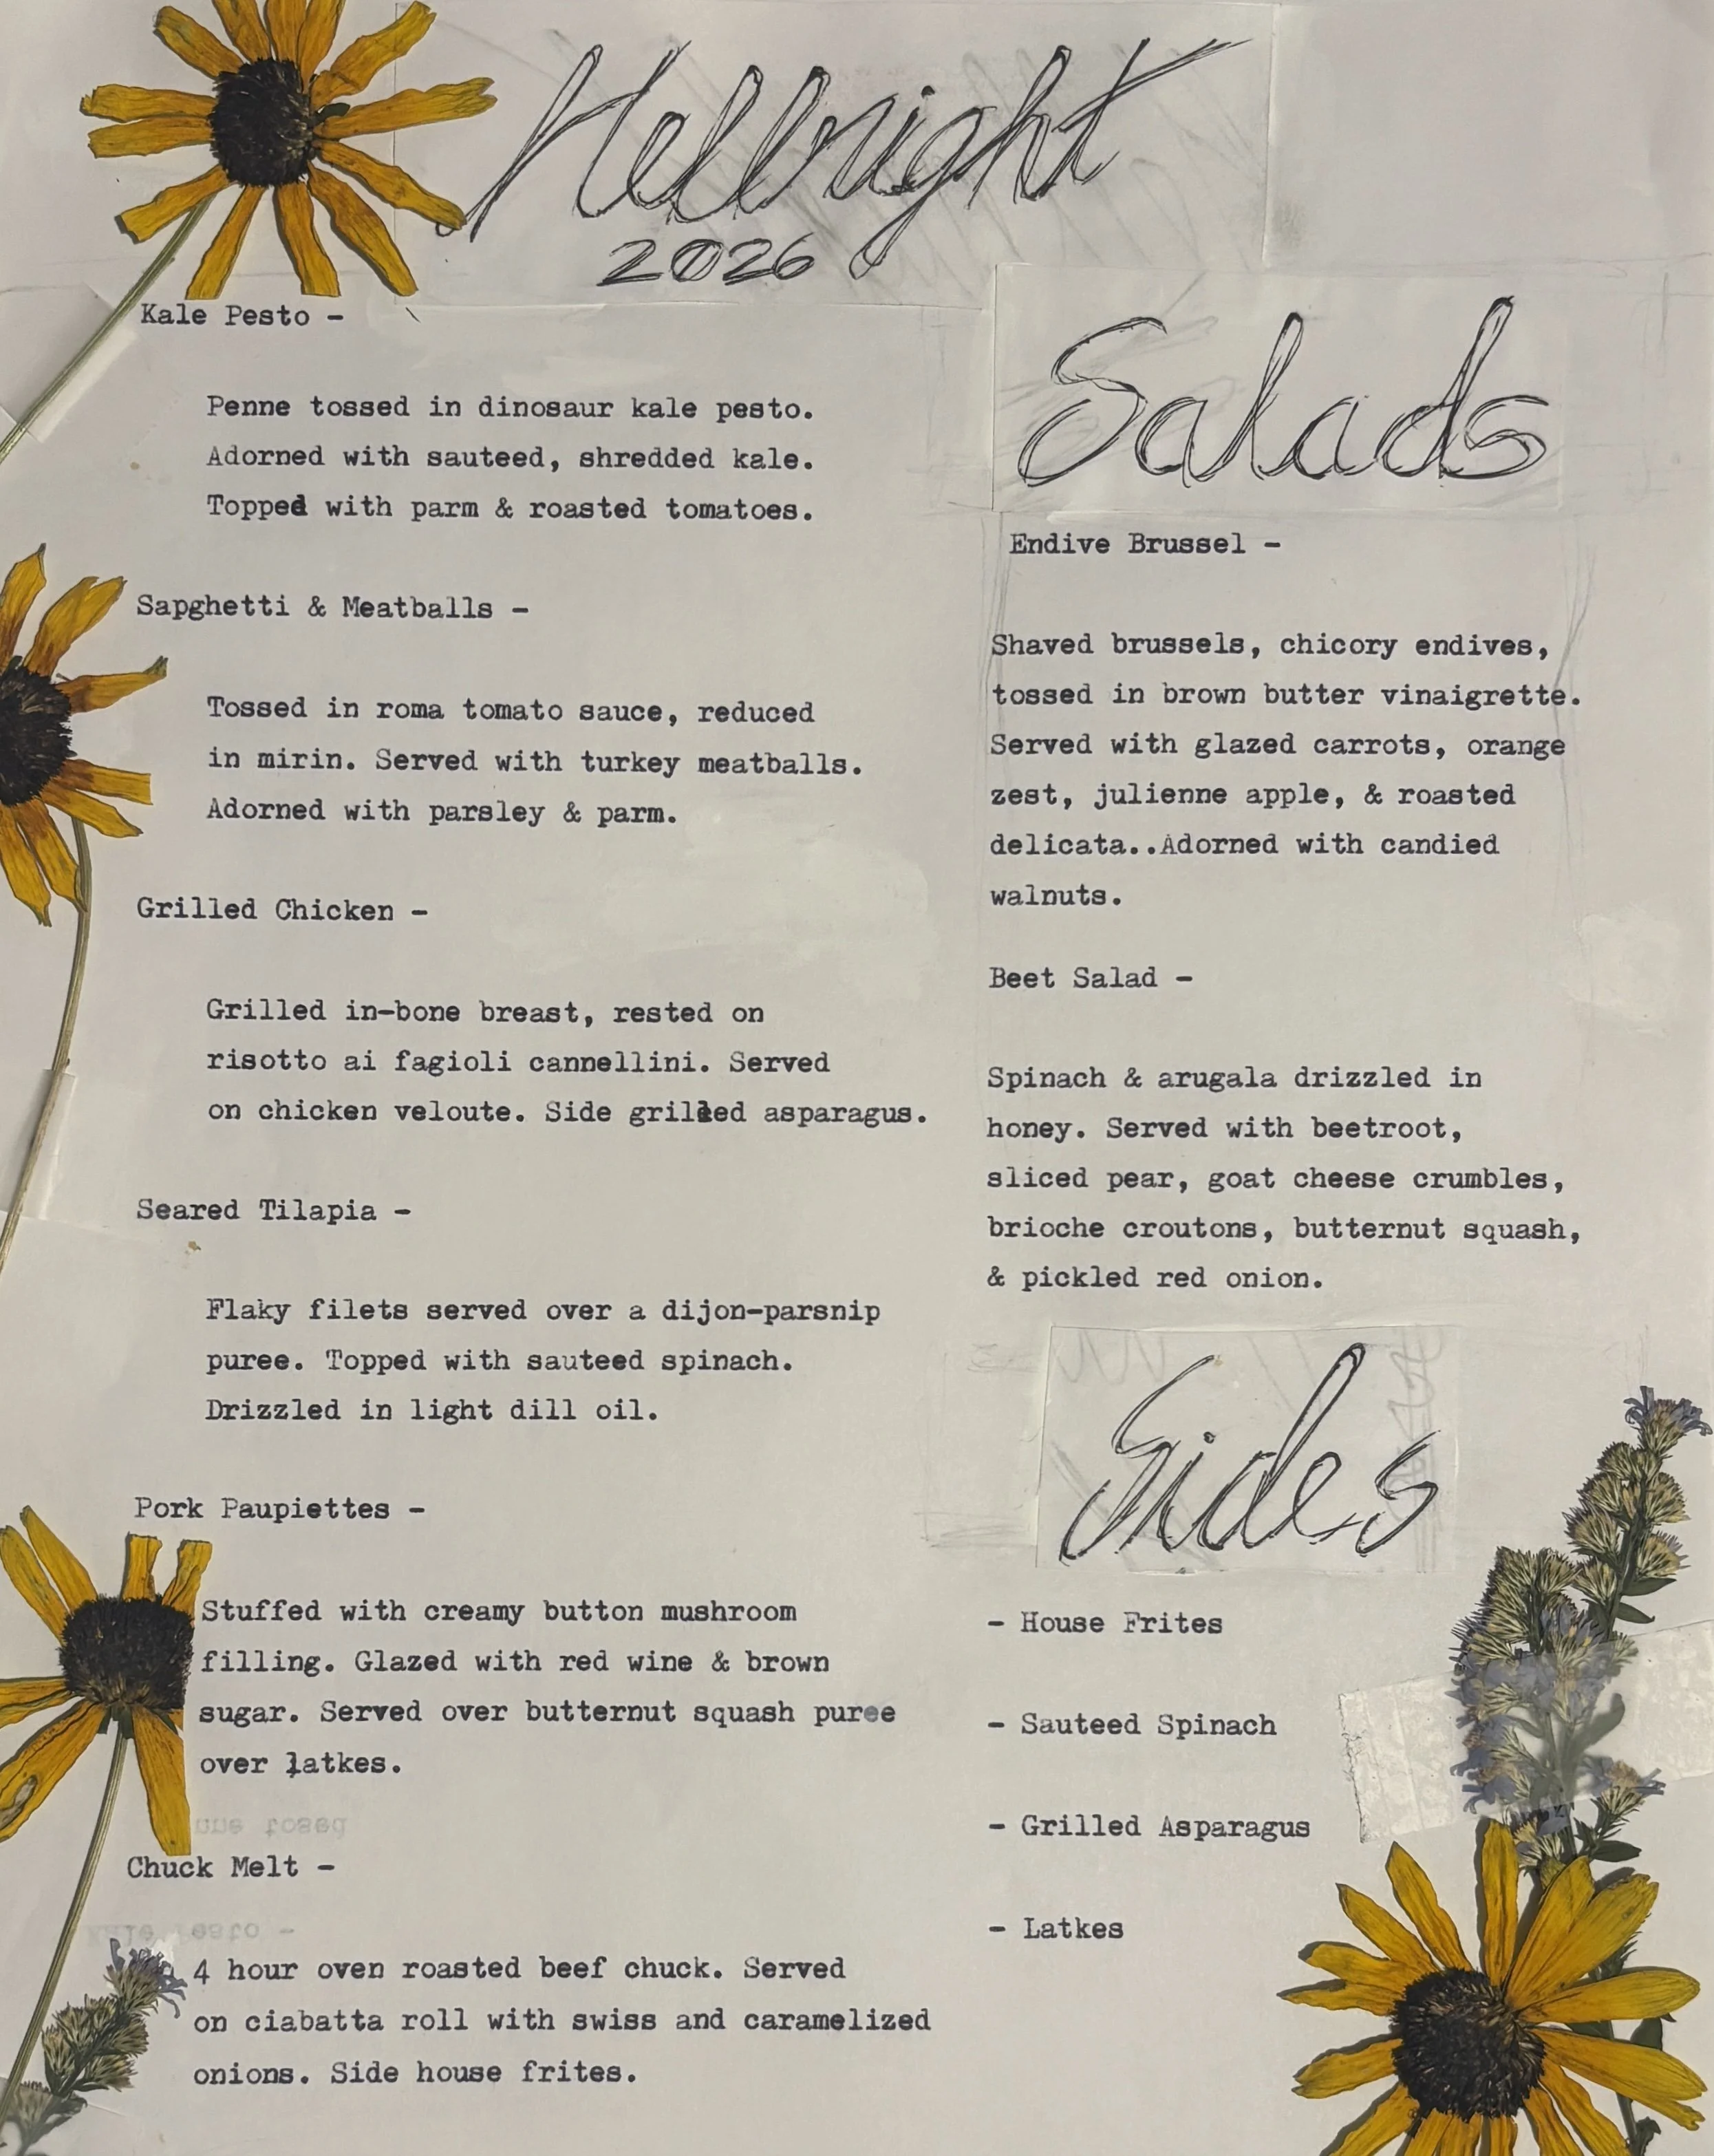 Hellnight
2026
Kale Pesto -
Penne tossed in dinosaur kale pesto.
Adorned with sauteed, shredded kale.
Topped with parm & roasted tomatoes.
Sapghetti & Meatballs -
Tossed in roma tomato sauce, reduced
in mirin. Served with turkey meatballs.
Adorned with parsley & parm.
Grilled Chicken -
Grilled in-bone breast, rested on
risotto ai fagioli cannellini. Served
on chicken veloute. Side grilled asparagus.
Seared Tilapia -
Flaky filets served over a dijon-parsnip
puree. Topped with sauteed spinach.
Drizzled in light dill oil.
Pork Paupiettes -
Stuffed with creamy button mushroom
filling. Glazed with red wine & brown
sugar. Served over butternut squash puree
over latkes.
Chuck Melt -
4 hour oven roasted beef chuck. Served
on ciabatta roll with swiss and caramelized
onions. Side house frites.
Salads
Endive Brussel -
Shaved brussels, chicory endives,
tossed in brown butter vinaigrette.
Served with glazed carrots, orange
zest, julienne apple, & roasted
delicata..Adorned with candied
walnuts.
Beet Salad -
Spinach & arugala drizzled in
honey. Served with beetroot,
sliced pear, goat cheese crumbles,
brioche croutons, butternut squash,
& pickled red onion.
Sides
- House Frites
- Sauteed Spinach
- Grilled Asparagus
- Latkes